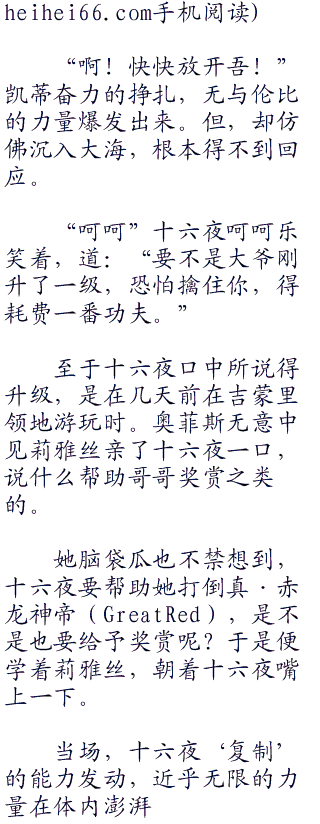 heihei66.com手机阅读)
“啊！快快放开吾！”
凯蒂奋力的挣扎，无与伦比
的力量爆发出来。但，却仿
佛沉入大海，根本得不到回
应。
“呵呵”十六夜呵呵乐
笑着，道：“要不是大爷刚
升了一级，恐怕擒住你，得
耗费一番功夫。”
至于十六夜口中所说得
升级，是在几天前在吉蒙里
领地游玩时。奥菲斯无意中
见莉雅丝亲了十六夜一口，
说什么帮助哥哥奖赏之类
的。
她脑袋瓜也不禁想到，
十六夜要帮助她打倒真·赤
龙神帝（GreatRed），是不
是也要给予奖赏呢？于是便
学着莉雅丝，朝着十六夜嘴
上一下。
当场，十六夜‘复制’
的能力发动，近乎无限的力
量在体内澎湃